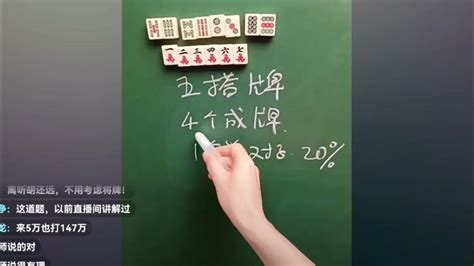 一二三四六七
萬萬萬萬萬萬
五搭牌
4个成牌
对子. 20%
离听胡还远，不用考虑将牌!
这道题，以前直播间讲解过
来5万也打147万
师说的对
师说得有理